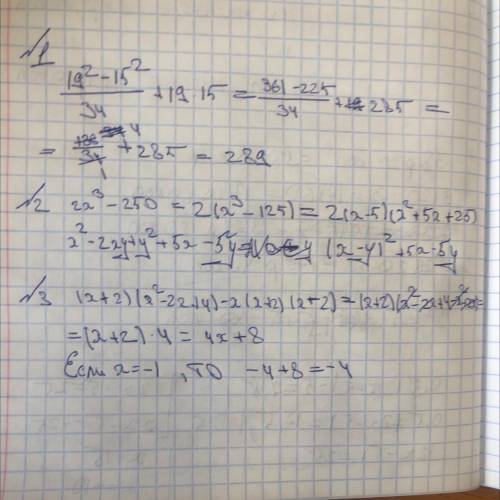 №1
19² - 15² / 34 + 19·15 = 361 - 225 / 34 + 285 =
= 136 / 34 4 / 1 + 285 = 289
№2 2x³ - 250 = 2(x³ - 125) = 2(x-5)(x²+5x+25)
x² - 2xy + y² + 5x - 5y = (x-y)² + 5x - 5y
№3 (x+2)(x²-2x+4) - x(x+2)(x-2) = (x+2)(x²-2x+4-x²+2x) =
= (x+2)·4 = 4x+8
Если x=-1, то -4+8=-4